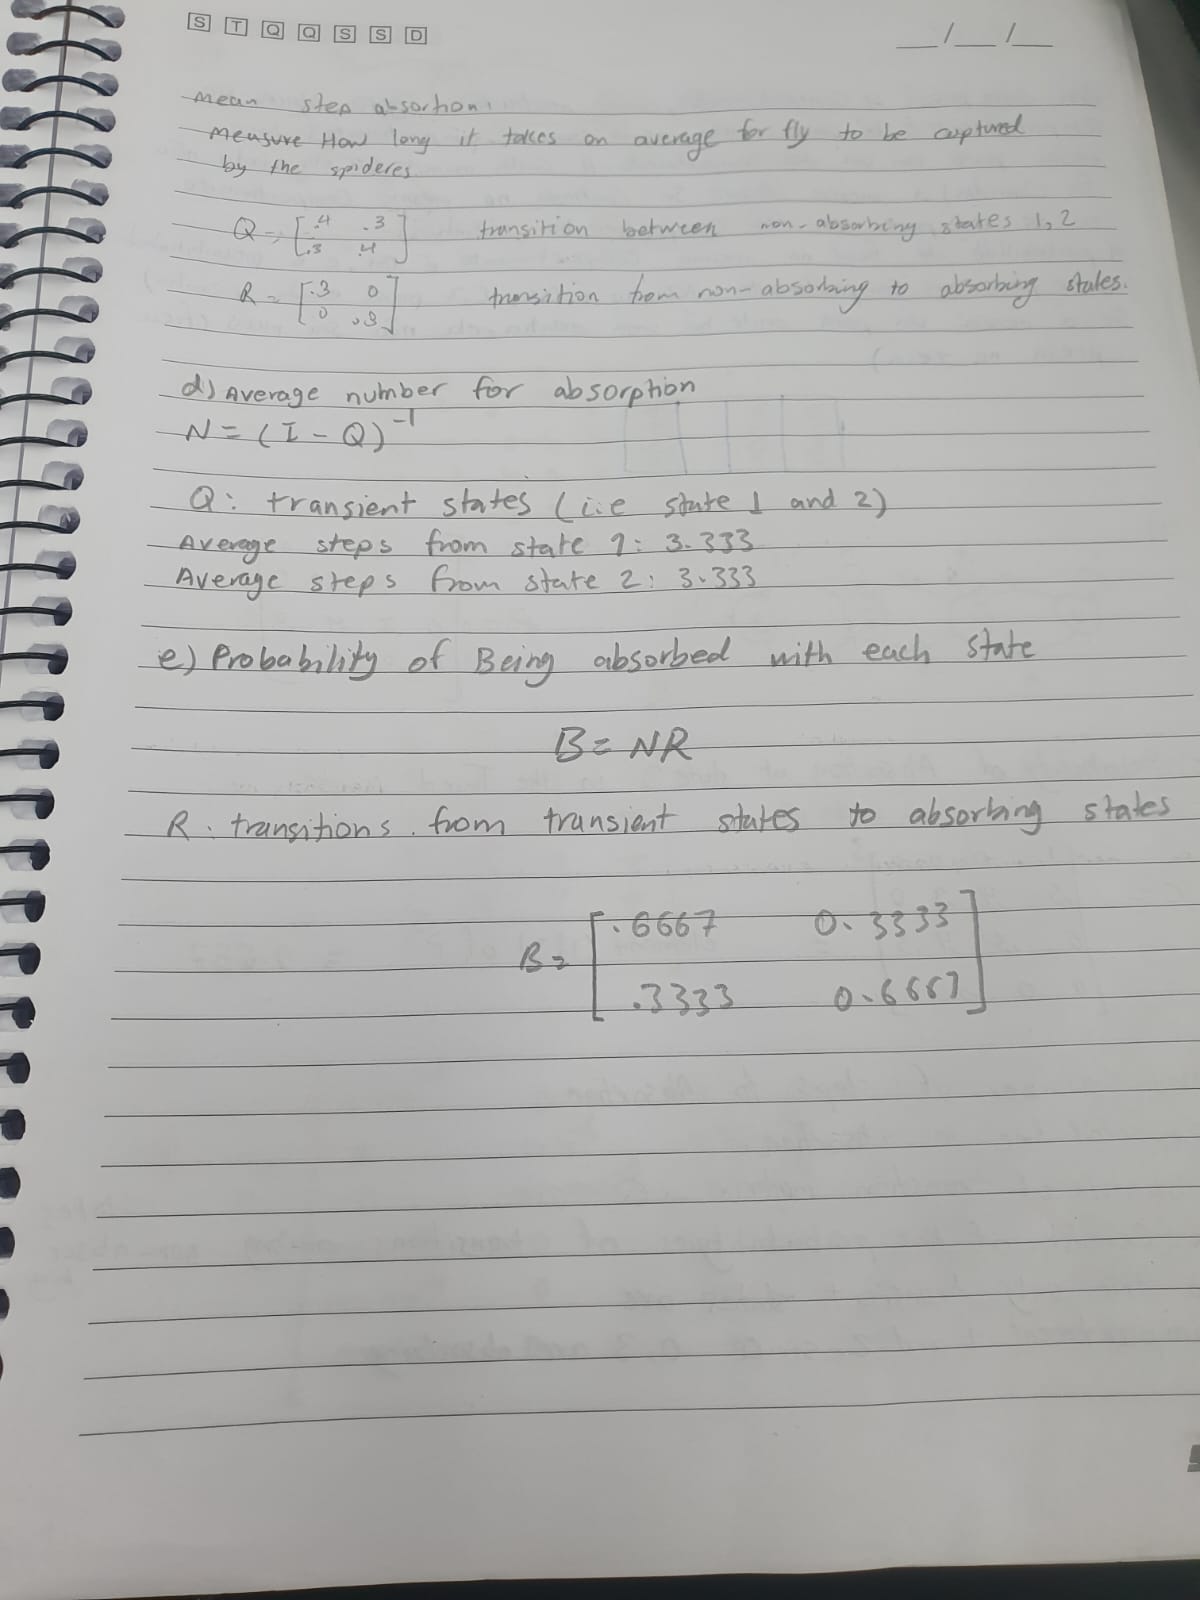 S T Q Q S S D
__/__/__
Mean step absortion:
Measure How long it takes on average for fly to be captured
by the spideres
Q = [.4 .3
.3 .4] transition between non-absorbing states 1, 2
R = [.3 0
0 .3] transition from non-absorbing to absorbing states.
d) Average number for absorption
N = (I - Q)⁻¹
Q: transient states (i.e state 1 and 2)
Average steps from state 1: 3.333
Average steps from state 2: 3.333
e) Probability of Being absorbed with each state
B = NR
R: transitions from transient states to absorbing states
B = [.6667 0.3333
.3333 0.6667]